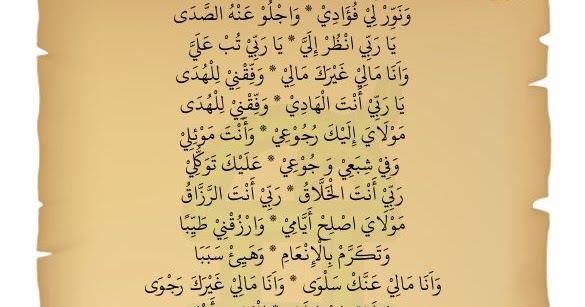 وَنَوِّرْ لِيْ فُؤَادِيْ * وَاجْلُوْ عَنْهُ الصَّدَى
يَا رَبِّي انْظُرْ إِلَيَّ * يَا رَبِّيْ تُبْ عَلَيَّ
وَاَنَا مَالِيْ غَيْرَكَ مَالِيْ * وَفِّقْنِيْ لِلْهُدَى
يَا رَبِّيْ أَنْتَ الْهَادِيْ * وَفِّقْنِيْ لِلْهُدَى
مَوْلَايَ إِلَيْكَ رُجُوْعِيْ * وَأَنْتَ مَوْئِلِيْ
وَفِيْ شِبَعِيْ وَ جُوْعِيْ * عَلَيْكَ تَوَكُّلِيْ
رَبِّيْ أَنْتَ الْخَلَّاقُ * رَبِّيْ أَنْتَ الرَّزَّاقُ
مَوْلَايَ اصْلِحْ أَيَّامِيْ * وَارْزُقْنِيْ طَيِّبًا
وَتَكَرَّمْ بِالْإِنْعَامِ * وَهَيِئْ سَبَبَا
وَاَنَا مَالِيْ عَنَّكَ سَلْوَى * وَاَنَا مَالِيْ غَيْرَكَ رَجْوَى